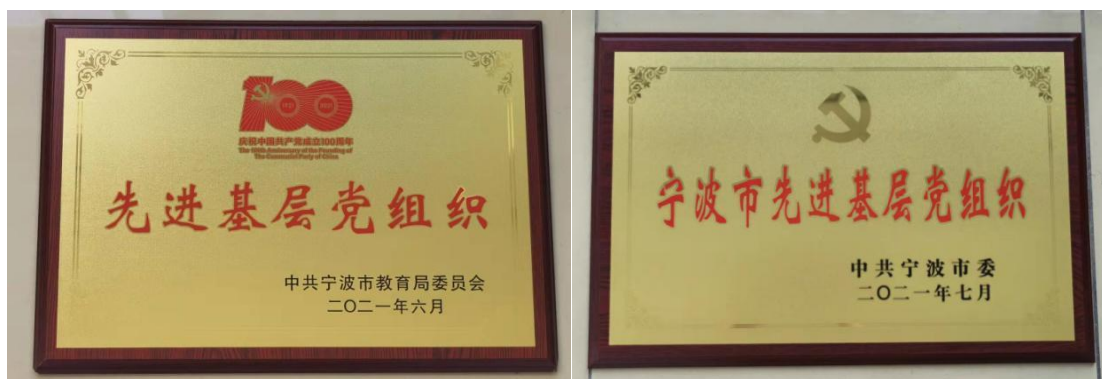 庆祝中国共产党成立100周年
The 100th Anniversary of the Founding of
The Communist Party of China
先进基层党组织
中共宁波市教育局委员会
二〇二一年六月
宁波市先进基层党组织
中共宁波市委
二〇二一年七月